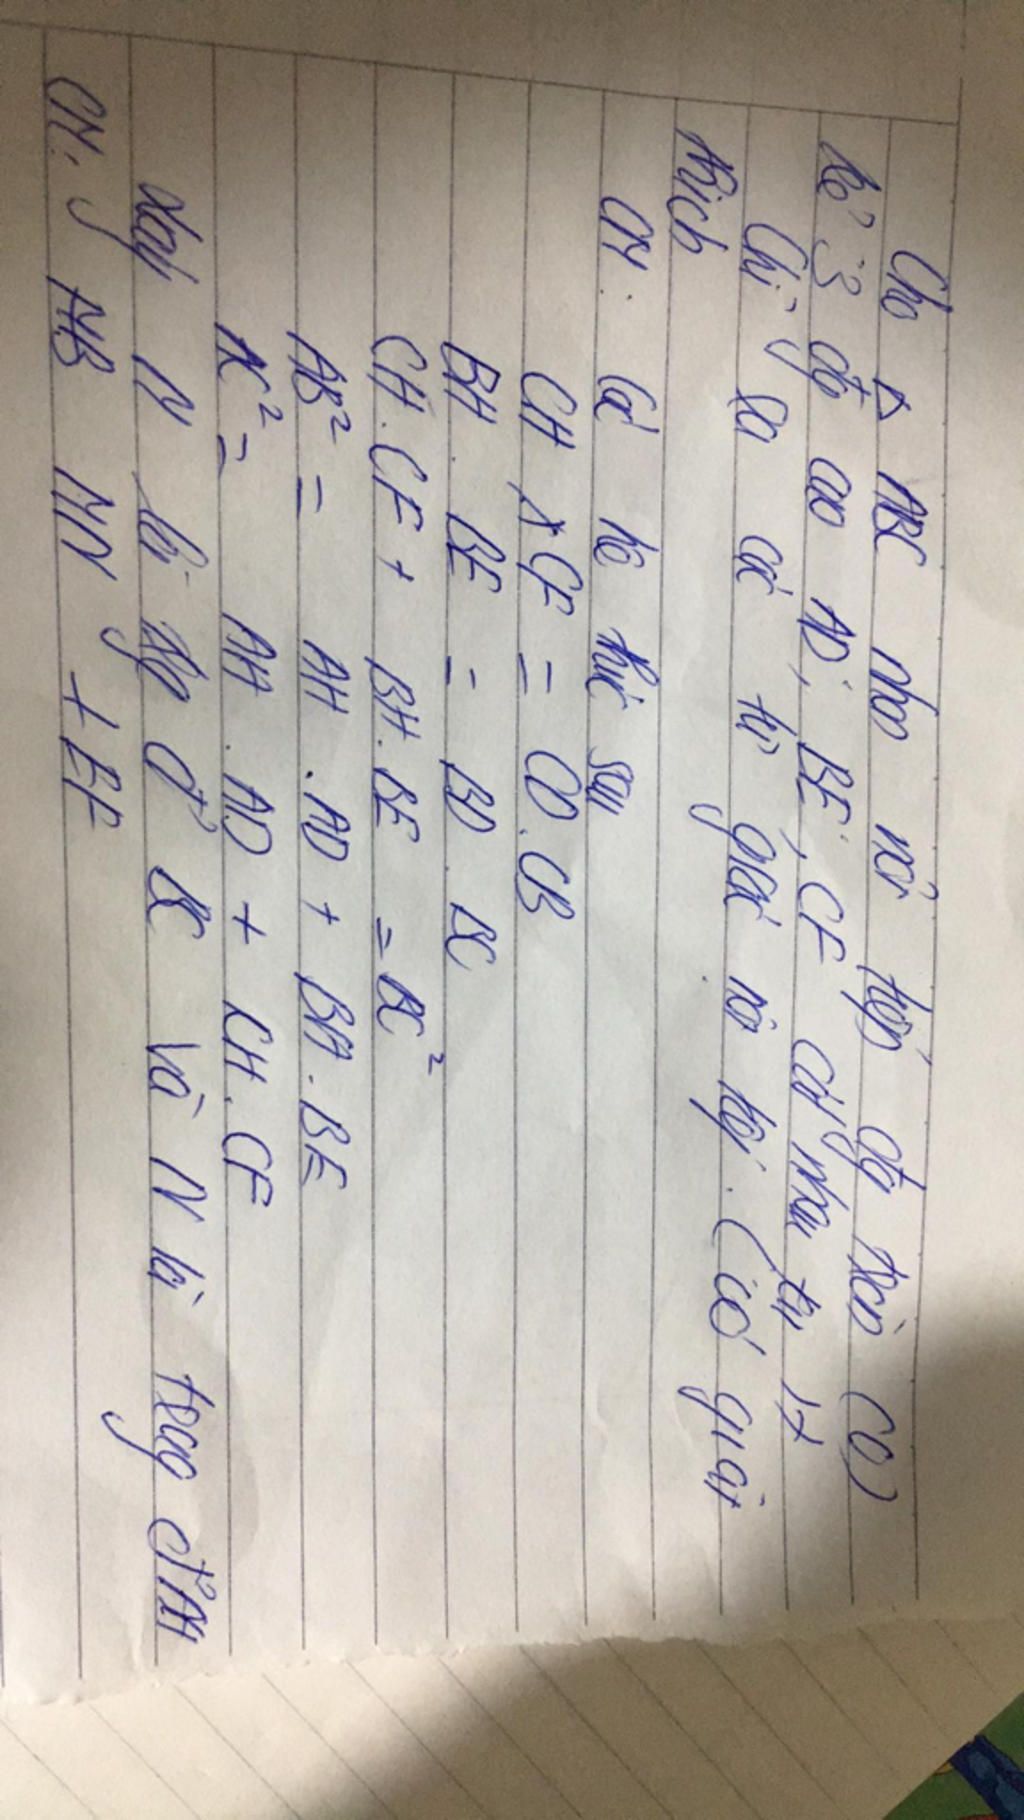 Cho △ ABC nhọn nội tiếp đg tròn (O)
kẻ 3 đg cao AD, BE, CF cắt nhau tại H
Chỉ ra các tứ giác nội tiếp. (có giải
thích
CM: Các hệ thức sau
CH × CF = CD.CB
BH. BE = BD. BC
CH.CF + BH.BE = BC²
AB² = AH.AD + BH.BE
AC² = AH.AD + CH.CF
N là BC và N là trung đ' AH
CM: MN ⊥ EF